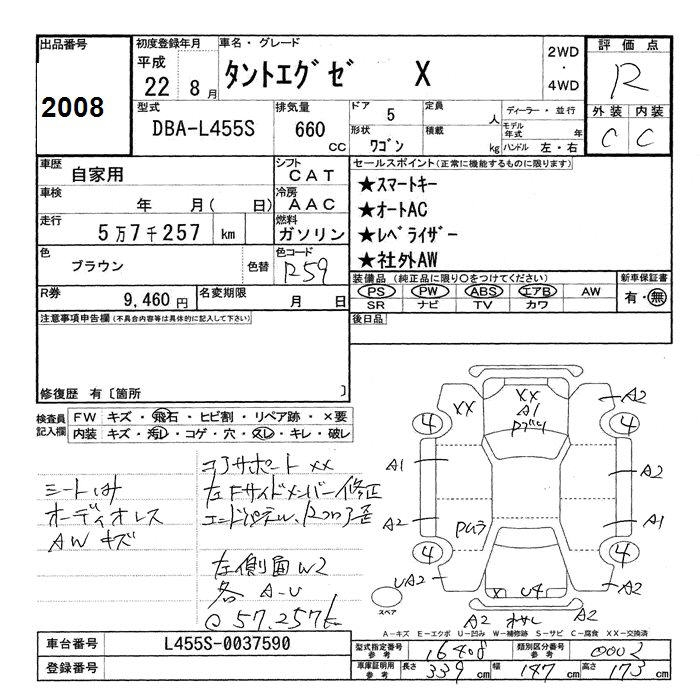 出品番号 初度登録年月 車名・グレード 2WD ・ 4WD 評価点
2008 平成 22 8月 タントエグゼ X R
型式 排気量 ドア 5 定員 人 ディーラー・並行 外装 内装
DBA-L455S 660 CC 形状 ワゴン 積載 kg モデル年式 年 ハンドル 左・右 C C
車歴 自家用 シフト CAT セールスポイント(正常に機能するものに限ります)
車検 年 月( 日) 冷房 AAC ★スマートキー
走行 5万7千257 km 燃料 ガソリン ★オートAC
★レベライザー
色 ブラウン 色替 色コード R59 ★社外AW
R券 9,460円 名変期限 月 日 装備品(純正品に限り○をつけてください) 新車保証書
PS PW ABS エアB AW 有・無
SR ナビ TV カワ
注意事項申告欄(不具合内容等は具体的に記入して下さい) 後日品
修復歴 有〔箇所 〕
検査員記入欄 FW キズ・飛石・ヒビ割・リペア跡・×要
内装 キズ・汚レ・コゲ・穴・スレ・キレ・破レ
コアサポート XX
シートはみ 左Fサイドメンバー修正
オーディオレス エンドパネル、Rフロア歪
AWキズ
左側面W2
各 A-U
@ 57.257k
XX XX A1 A2
4 4
A1 A2
A2 A1
4 4
UA2 X U4 A2
スペア A2 A2
A-キズ E-エクボ U-凹み W-補修跡 S-サビ C-腐食 XX-交換済
車台番号 L455S-0037590 型式指定番号 参考 16408 類別区分番号 参考 0002
登録番号 車庫証明用 参考 長さ 339 cm 幅 147 cm 高さ 173 cm